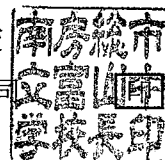 南房総市
立富山中
学校長印